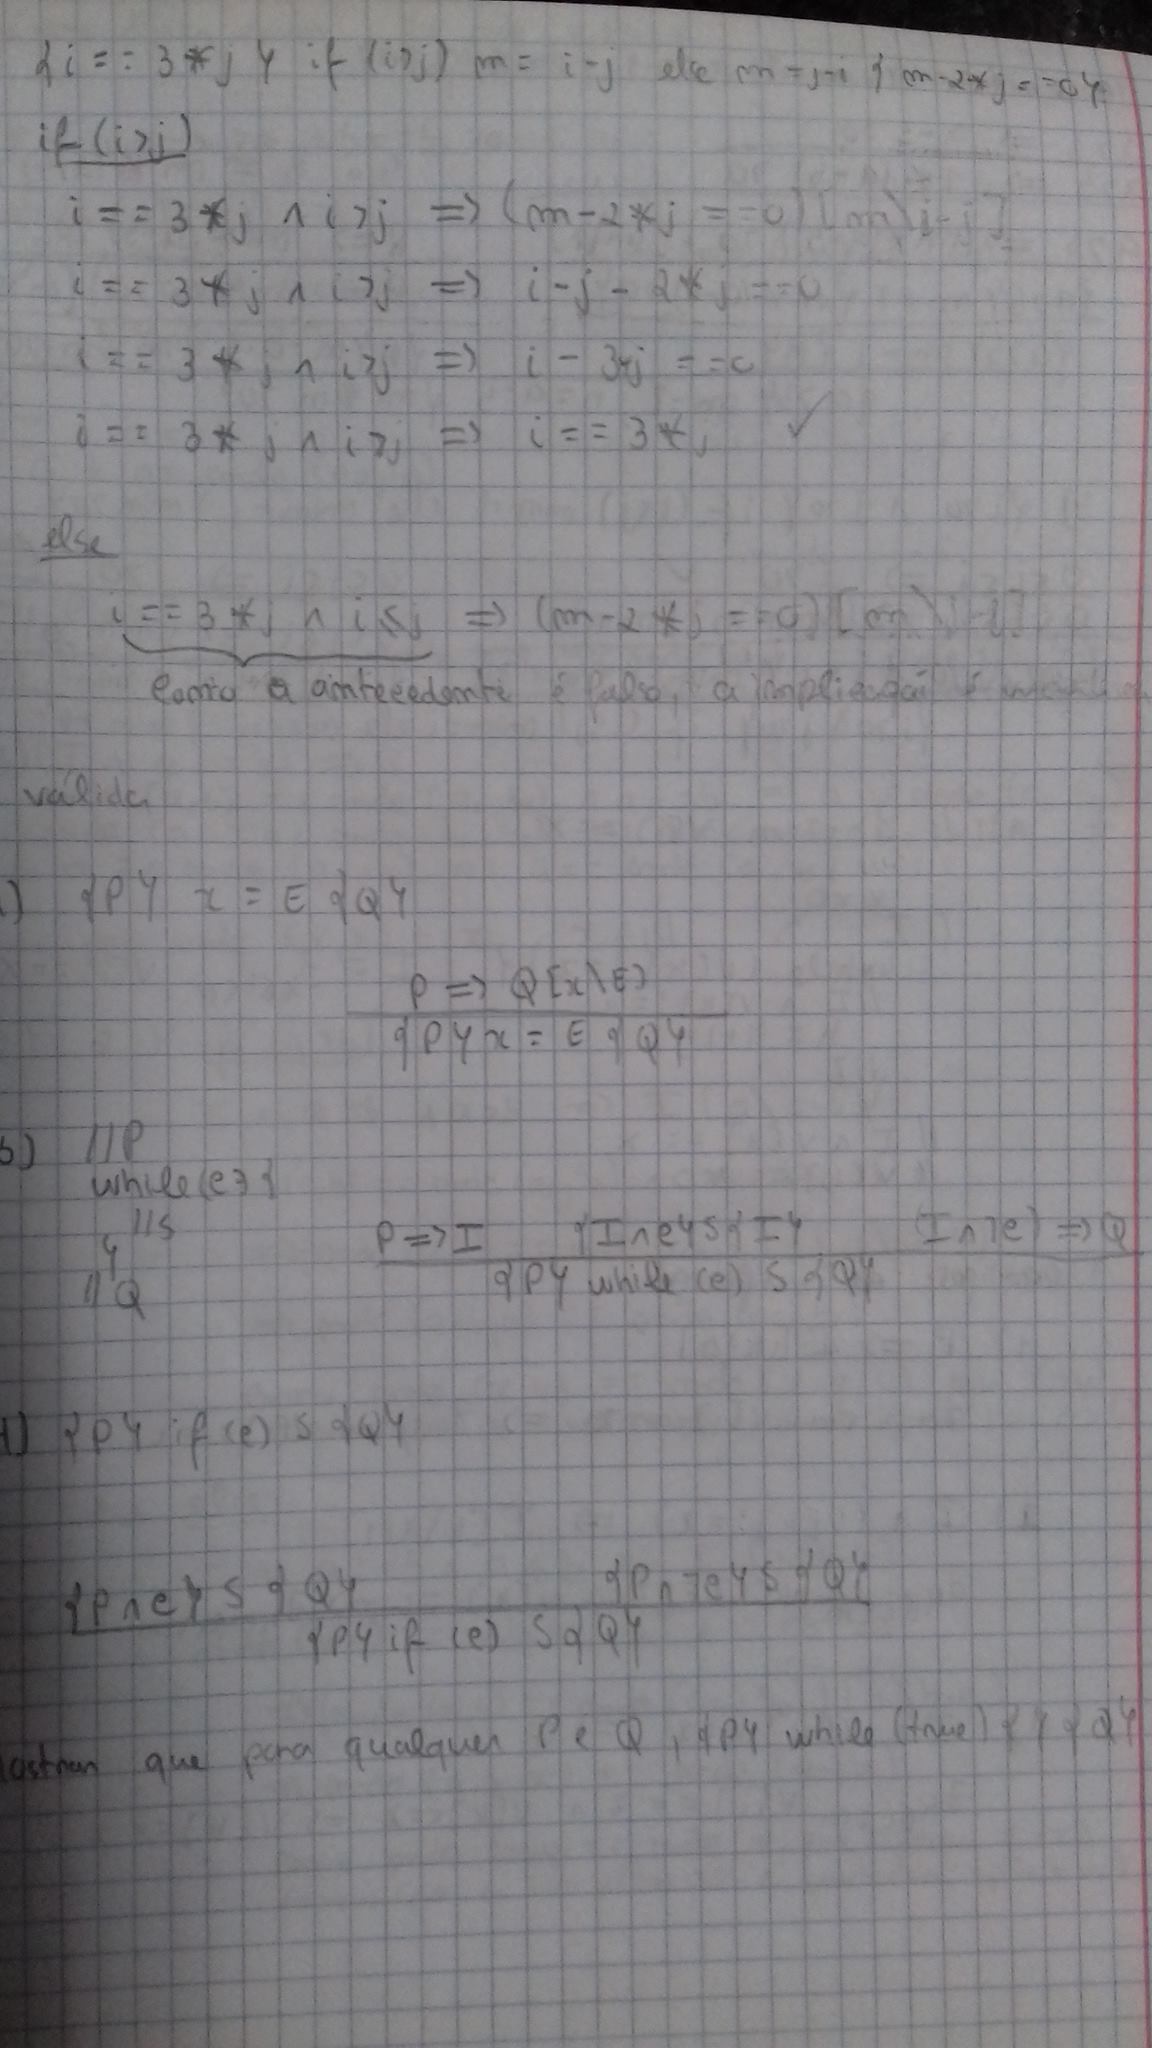 {i == 3*j} if (i>j) m = i-j else m = j-i {m-2*j == 0}
if (i>j)
i == 3*j ∧ i>j => (m-2*j == 0) [m\i-j]
i == 3*j ∧ i>j => i-j-2*j == 0
i == 3*j ∧ i>j => i - 3*j == 0
i == 3*j ∧ i>j => i == 3*j ✓
else
i == 3*j ∧ i≤j => (m-2*j == 0) [m\j-i]
Como a antecedente é falso, a implicação é
válida
) {P} x = E {Q}
P => Q[x\E]
{P} x = E {Q}
b) //P
while(e){
//S
}
//Q
P => I {I∧e} S {I} (I∧¬e) => Q
{P} while (e) S {Q}
) {P} if (e) S {Q}
{P∧e} S {Q} {P∧¬e} S {Q}
{P} if (e) S {Q}
ostrar que para qualquer P e Q, {P} while (true) { } {Q}